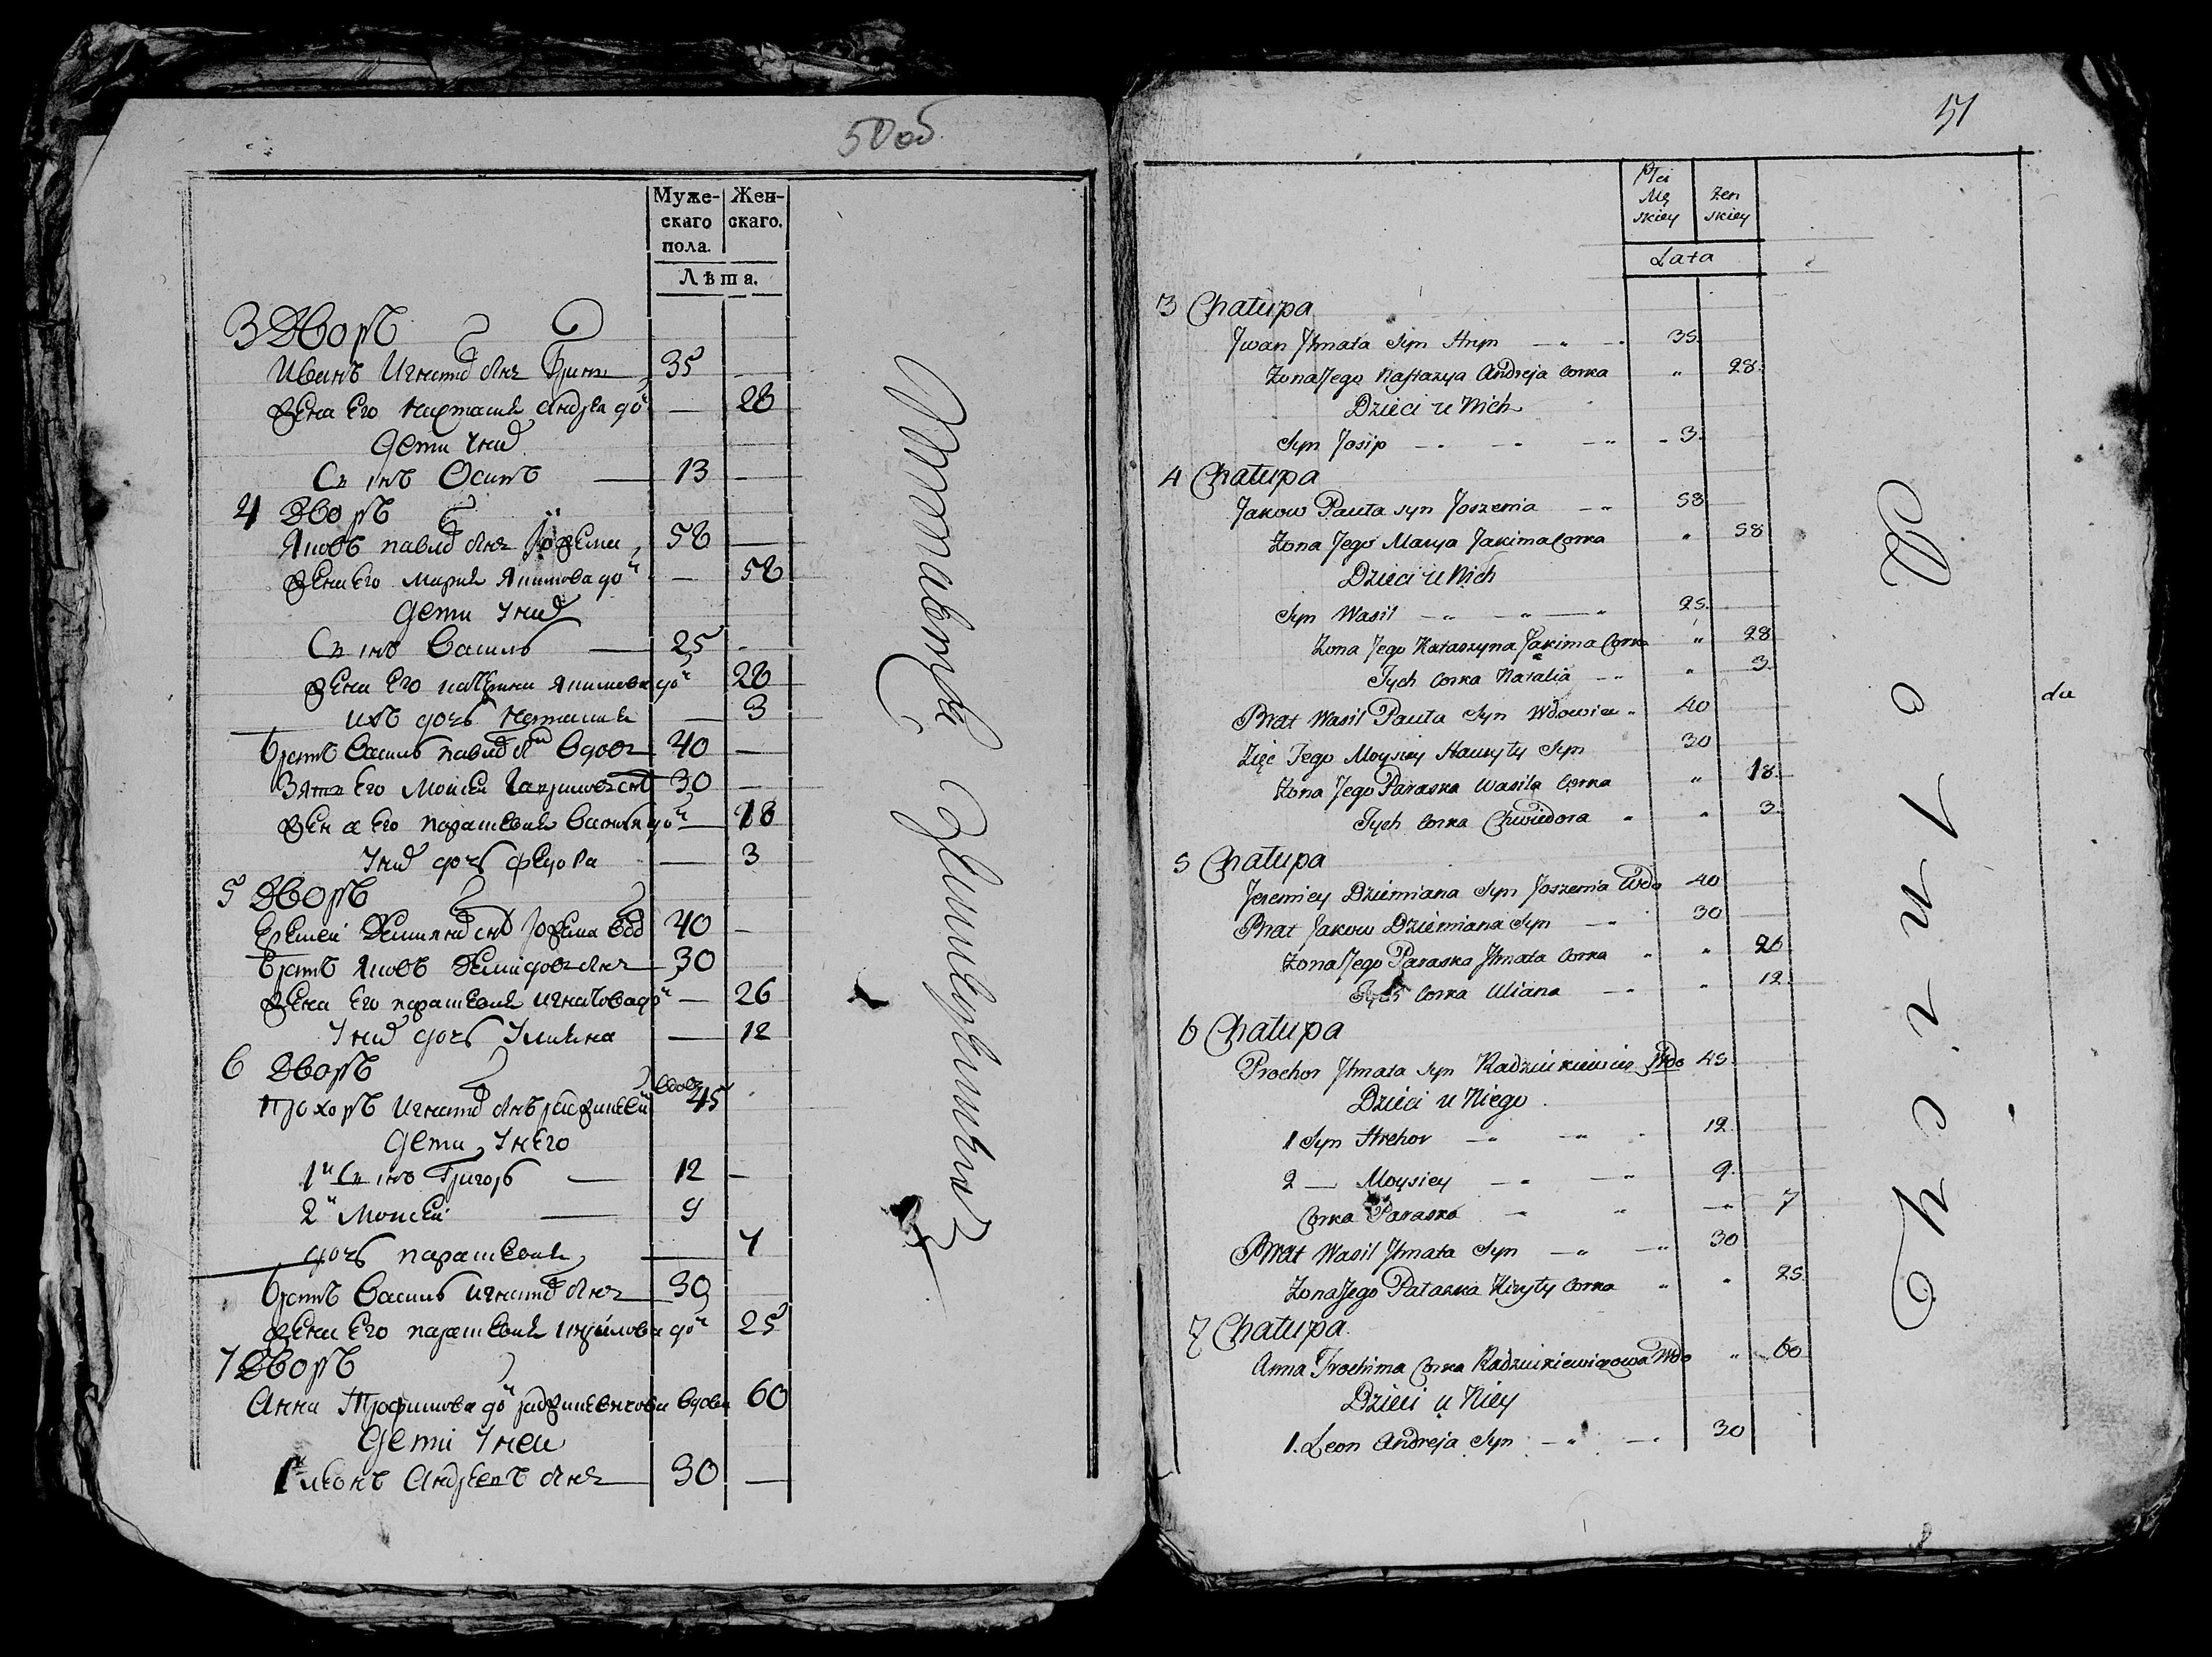 50 об.
Муже-
скаго
пола.
Жен-
скаго.
Лѣта.
3 Дворъ
Иванъ Игнатовъ Сынъ Гринь 35
Жена Его Настасия Андрѣева дочь 28
Дети у них
Сынъ Осипъ 13
4 Дворъ
Яковъ Павлов Сынъ 58
Жена Его Мария Якимова дочь 58
Дети у них
Сынъ Василь 25
Жена Его Якимова дочь 28
ихъ дочь Наталия 3
братъ Василь Павлов Сын вдовъ 40
Зять Его Моисей сынъ 30
Жена Его Парасковия Василя дочь 18
у них дочь Федора 3
5 Дворъ
Еремей сынъ вдо 40
братъ Яковъ Демидовъ Сынъ 30
Жена Его Парасковия Игнатова дочь 26
у них дочь Улияна 12
6 Дворъ
вдовъ
Прохоръ Игнатов Сынъ 45
Дети у него
1й Сынъ Григоръ 12
2й Моисей 9
дочь Парасковия 7
братъ Василь Игнатов Сынъ 30
Жена Его Парасковия дочь 25
7 Дворъ
Анна Трофимова дочь вдова 60
Дети у неи
1й Леонъ Андреевъ Сынъ 30
51
Płci
Mę
skiey
Żen
skiey
Lata
3 Chałupa
Jwan Jhnata Syn Hryn 35.
Żona Jego Nastazya Andreja Corka " 28.
Dzieci u Nich
Syn Josip 3.
4 Chałupa
Jakow Pauła syn Joszenia 58
Żona Jego Marya Jakima Corka " 58
Dzieci u Nich
Syn Wasil 25.
Żona Jego Katarzyna Jakima Corka " 28
Tych Corka Natalia " 3.
Brat Wasil Pauła Syn Wdowiec 40
Zięc Jego Moysiey Hauryły Syn 30
Żona Jego Paraska Wasila Corka " 18.
Tych Corka Chwiedora " 3.
5 Chałupa
Jeremiey Dziemiana Syn Joszenia Wdo 40
Brat Jakow Dziemiana Syn 30
Żona Jego Paraska Jhnata Corka " 26.
Tych Corka Uliana " 12.
6 Chałupa
Prochor Jhnata Syn Radziukiewicz Wdo 45.
Dzieci u Niego
1 Syn Hrehor 12.
2 — Moysiey 9.
Corka Paraska 7
Brat Wasil Jhnata Syn 30
Żona Jego Paraska Kiryły Corka " 25.
7 Chałupa
Anna Trochima Corka Radziukiewiczowa Wdo " 60
Dzieci u Niey
1. Leon Andreja Syn 30
du